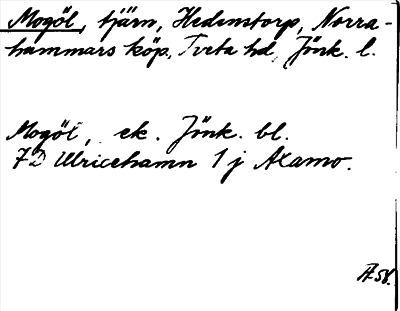 Mogöl, tjärn, Hedenstorp, Norra-
hammars köp, Tveta hd, Jönk. l.
Mogöl, ek. Jönk. bl.
7D Ulricehamn 1 j Axamo.
Æ 58.